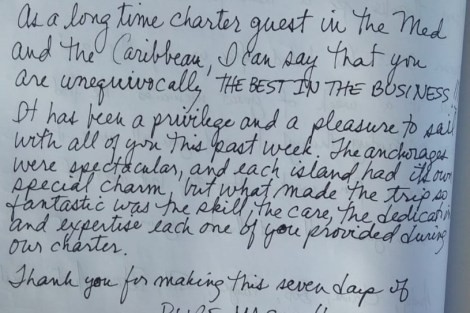 As a long time charter guest in the Med
and the Caribbean, I can say that you
are unequivocally THE BEST IN THE BUSINESS
It has been a privilege and a pleasure to sail
with all of you this past week. The anchorages
were spectacular, and each island had its own
special charm, but what made the trip so
fantastic was the skill, the care, the dedication
and expertise each one of you provided during
our charter.
Thank you for making this seven days of
PURE